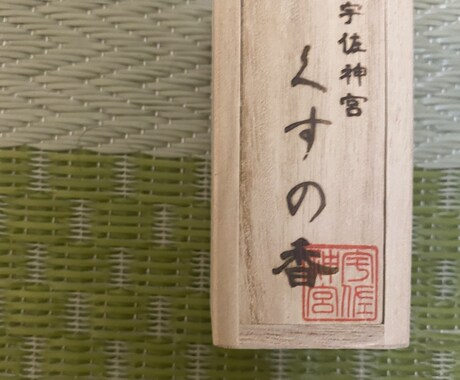 宇佐神宮
くすの香
宇佐神宮